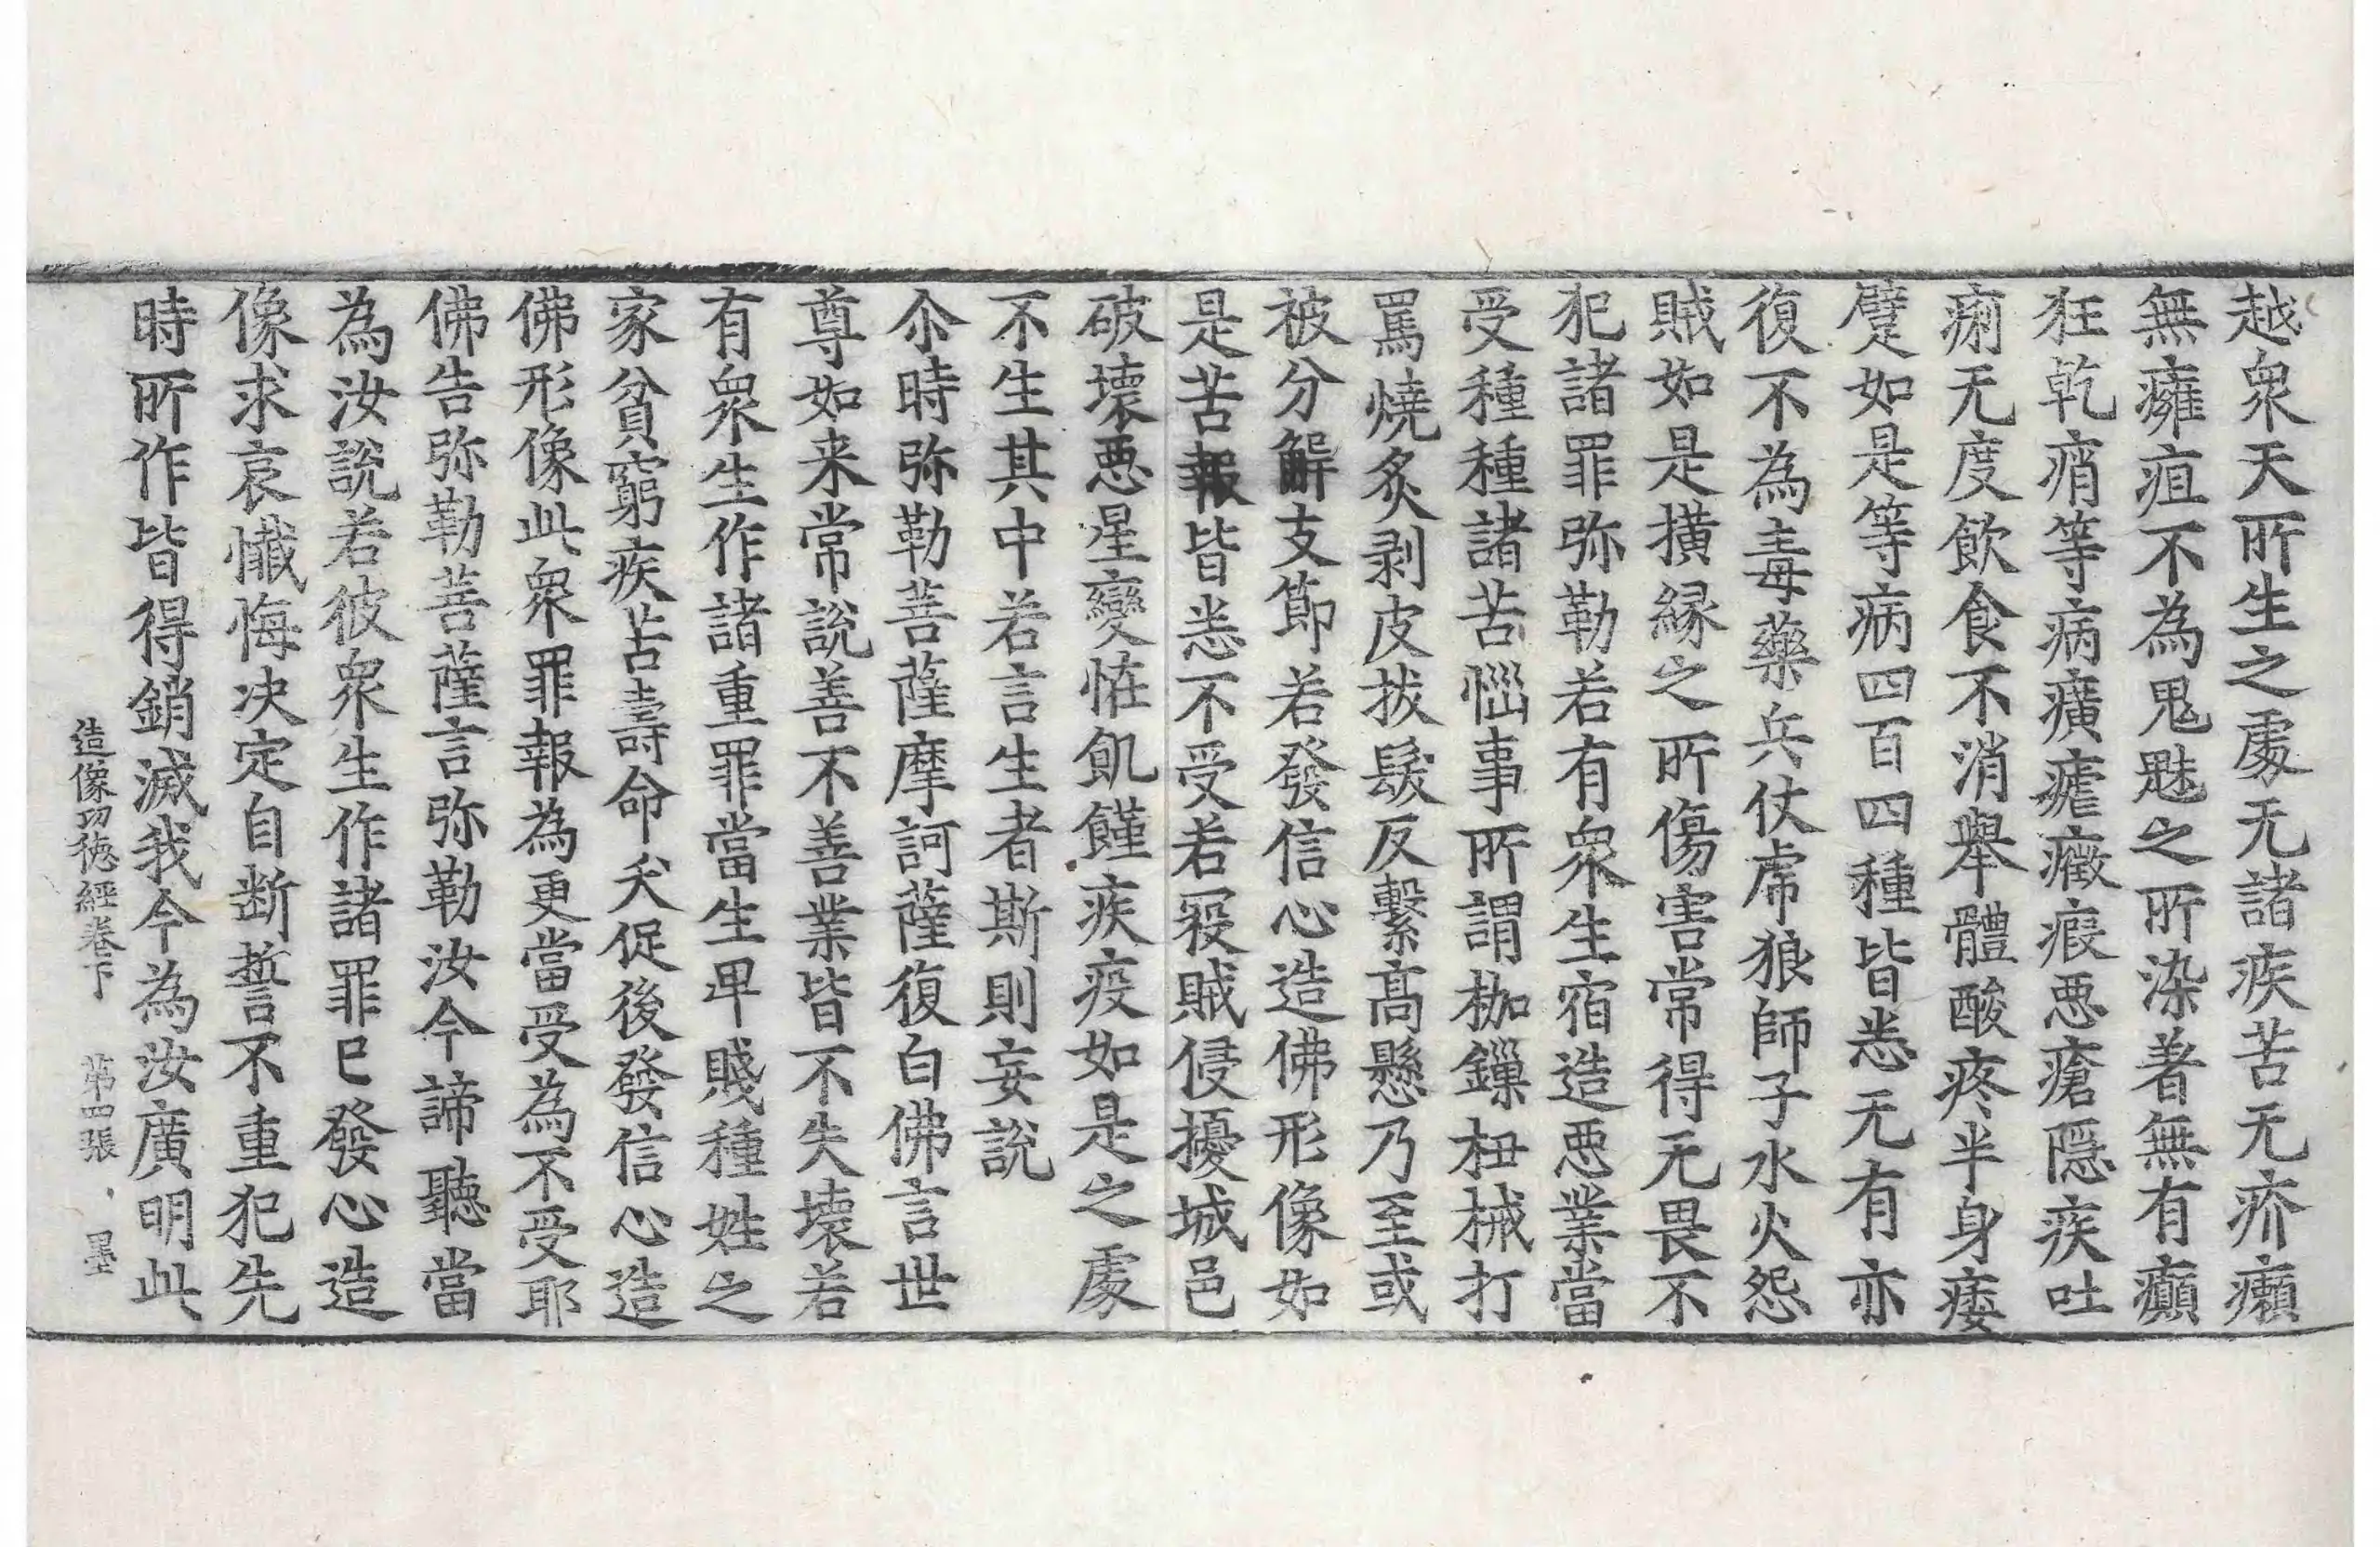 越衆天所生之處无諸疾苦无疥癩
無癰疽不為鬼魅之所染著無有癲
狂乾痟等病癀瘧癥瘕惡瘡隱疾吐
痢无度飲食不消舉體酸疼半身痿
躄如是等病四百四種皆悉无有亦
復不為毒藥兵仗虎狼師子水火怨
賊如是撗緣之所傷害常得无畏不
犯諸罪弥勒若有衆生宿造惡業當
受種種諸苦惱事所謂枷鏁杻械打
罵燒炙剥皮拔髮反繫高懸乃至或
被分解支節若發信心造佛形像如
是苦報皆悉不受若冦賊侵擾城邑
破壞惡星變恠飢饉疾疫如是之處
不生其中若言生者斯則妄說
尒時弥勒菩薩摩訶薩復白佛言世
尊如来常說善不善業皆不失壞若
有衆生作諸重罪當生卑賤種姓之
家貧窮疾苦壽命夭促後發信心造
佛形像此衆罪報為更當受為不受耶
佛告弥勒菩薩言弥勒汝今諦聽當
為汝說若彼衆生作諸罪已發心造
像求哀懺悔决定自断誓不重犯先
時所作皆得銷滅我今為汝廣明此
造像功德經卷下　第四張　墨